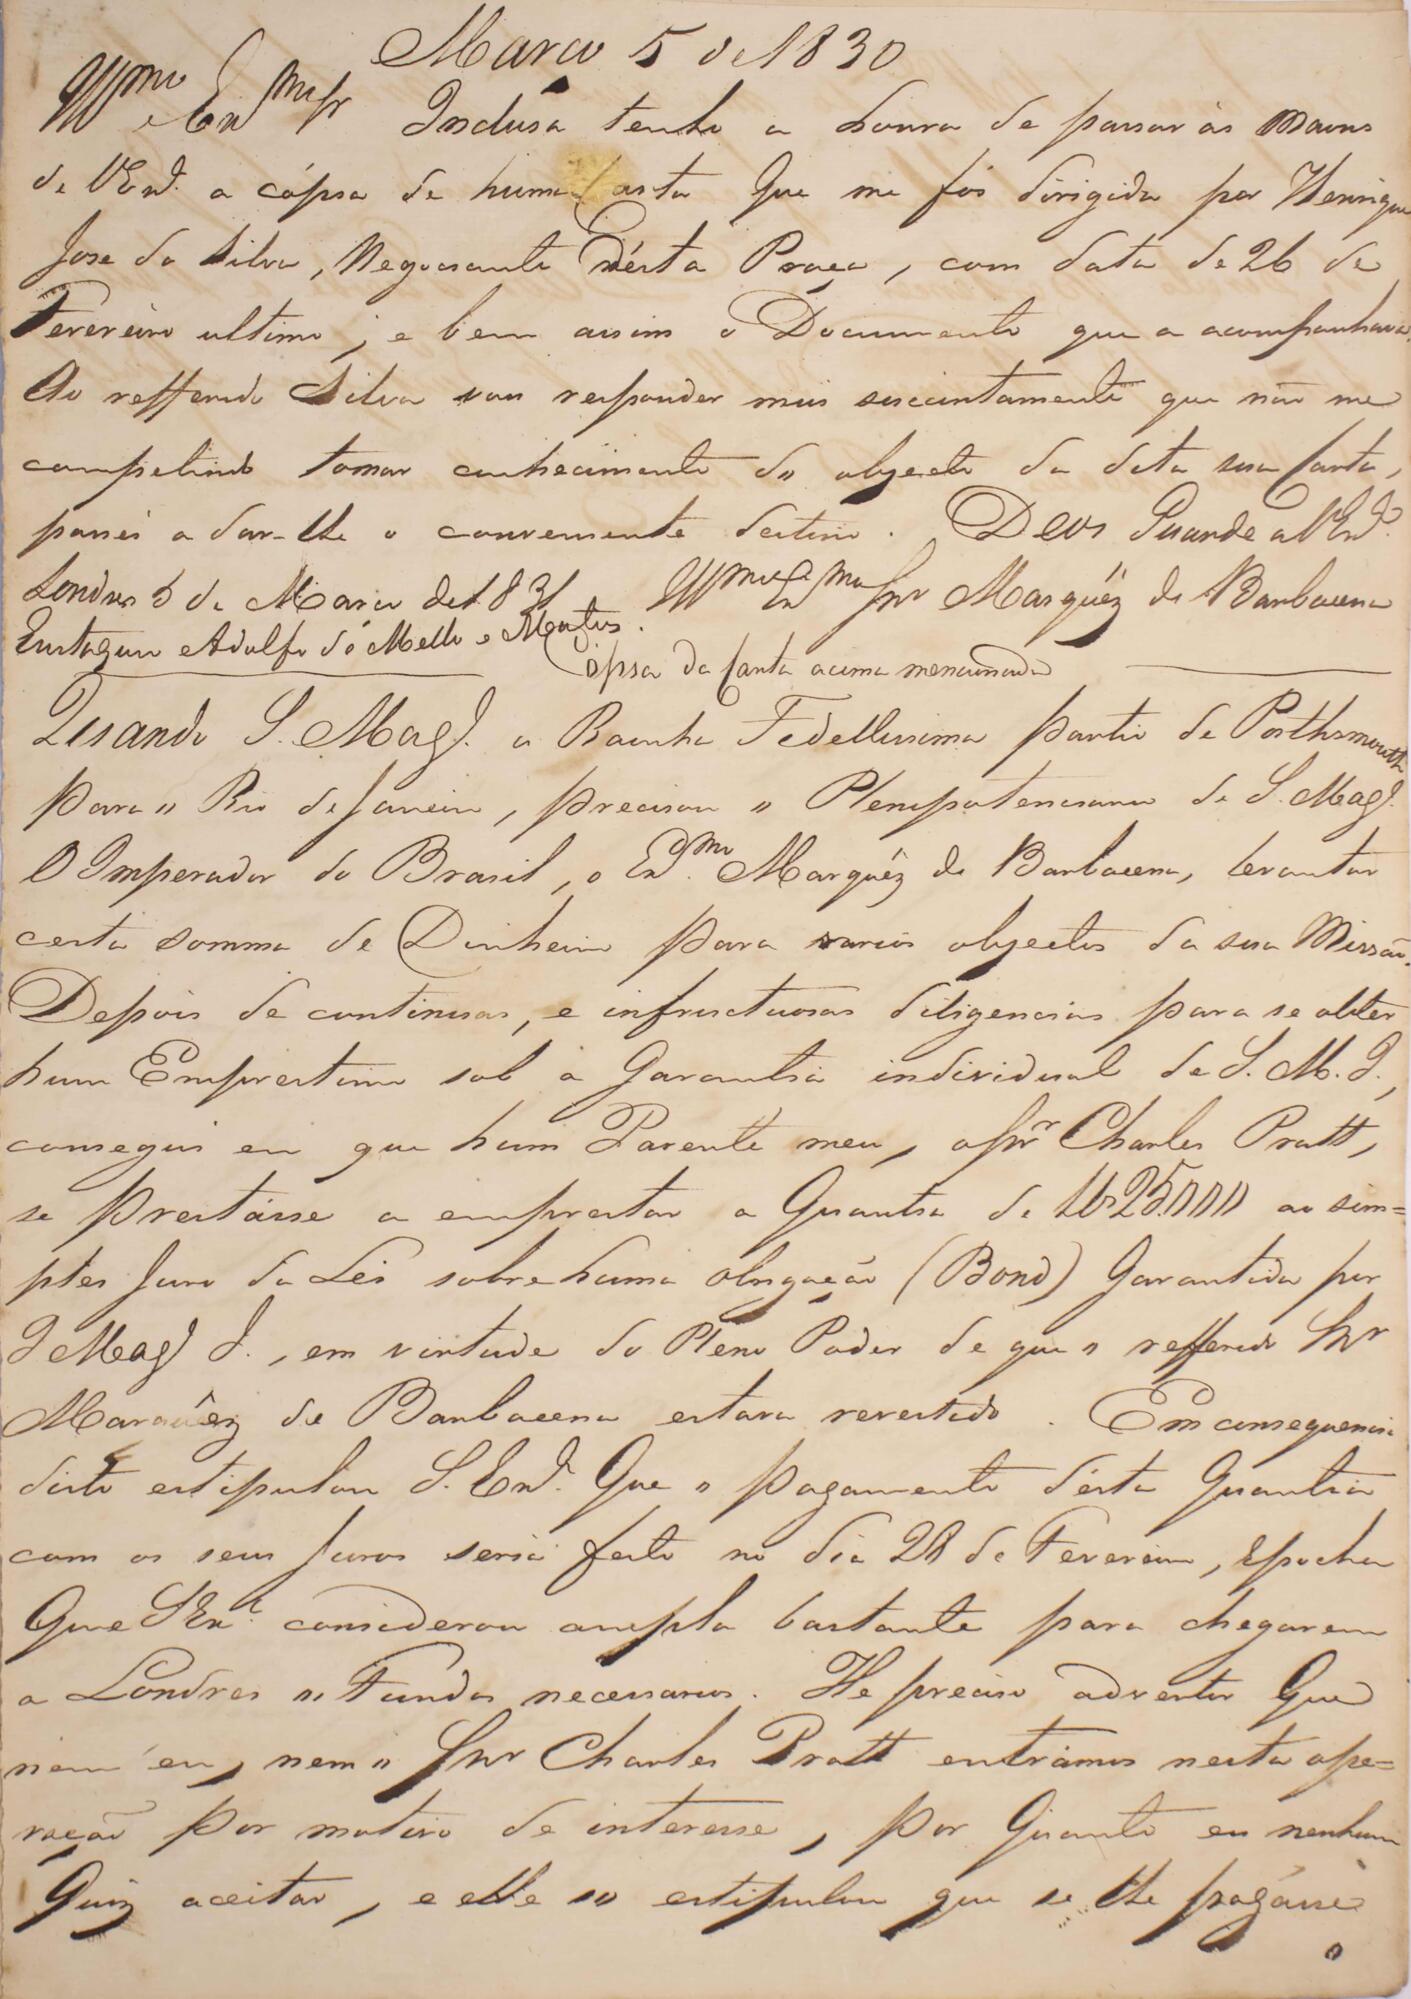 Março 5 de 1830
Illmo e Exmo Sr Inclusa tenho a honra de passar ás Maons
de VExa. a cópia de huma Carta Que me fói dirigida por Henrique
Jose da Silva, Negociante d'ésta Praça, com data de 26 de
Fevereiro ultimo, e bem assim o Documento que a acompanhava.
Ao refferido Silva vou responder mui sucintamente que não me
competindo tomar conhecimento do objecto da dita sua Carta,
passei a dar-lhe o conveniente destino. Deos Guarde a VExa.
Londres 5 de Março de 1831 Illmo e Exmo Snr Marquêz de Barbacena
Eustaquio Adolfo de Mello e Mattos.
Cópia da Carta acima mencionada
Quando S. Magde. a Rainha Fidellissima partio de Porthsmouth
para o Rio de Janeiro, precisou o Plenipotenciario de S. Magde.
O Imperador do Brasil, o Exmo. Marquêz de Barbacena, levantar
certa somma de Dinheiro para varios objectos da sua Missão.
Depois de continuas, e infructuosas diligencias para se obter
hum Emprestimo sob a Garantia individual de S. M. I.,
consegui eu que hum Parente meu, o Snr Charles Pratt,
se prestásse a emprestar a Quantia de Lbs 25.000 ao sim=
ples Juro da Lei sobre huma obrigação (Bond) Garantida por
S Magde I., em virtude do Pleno Poder de que o refferido Snr
Marquêz de Barbacena estava revestido. Em consequencia
disto estipulou S. Exa. Que o pagamento désta Quantia
com os seus Juros seria feito no dia 28 de Fevereiro, Epocha
Que SExa. considerou ampla bastante para chegarem
a Londres os Fundos necessarios. He preciso advertir Que
nem eu, nem o Snr Charles Pratt entrámos nesta ope=
ração por motivo de interesse, por Quanto eu nenhum
Quiz aceitar, e elle so estipulou que se lhe pagásse
o